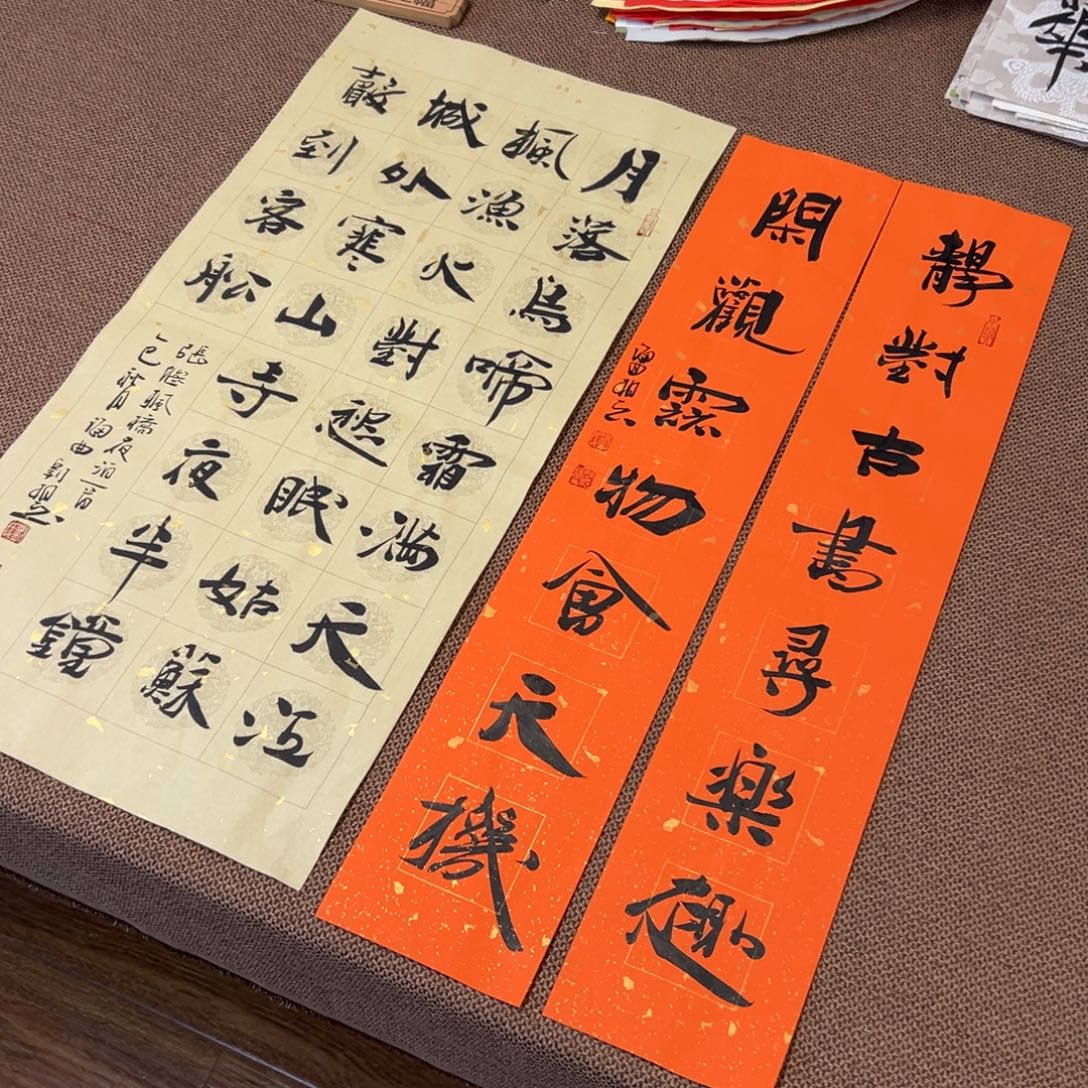 靜對古書尋樂趣
閑觀雲物會天機
月落烏啼霜滿天江
楓漁火對愁眠姑蘇
城外寒山寺夜半鐘
聲到客船
張繼楓橋夜泊一首
乙巳秋月